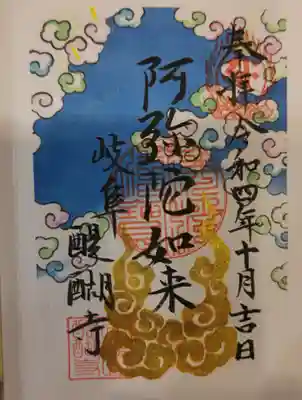 奉拝 令和四年十月吉日
阿弥陀如来
岐阜 醍醐寺